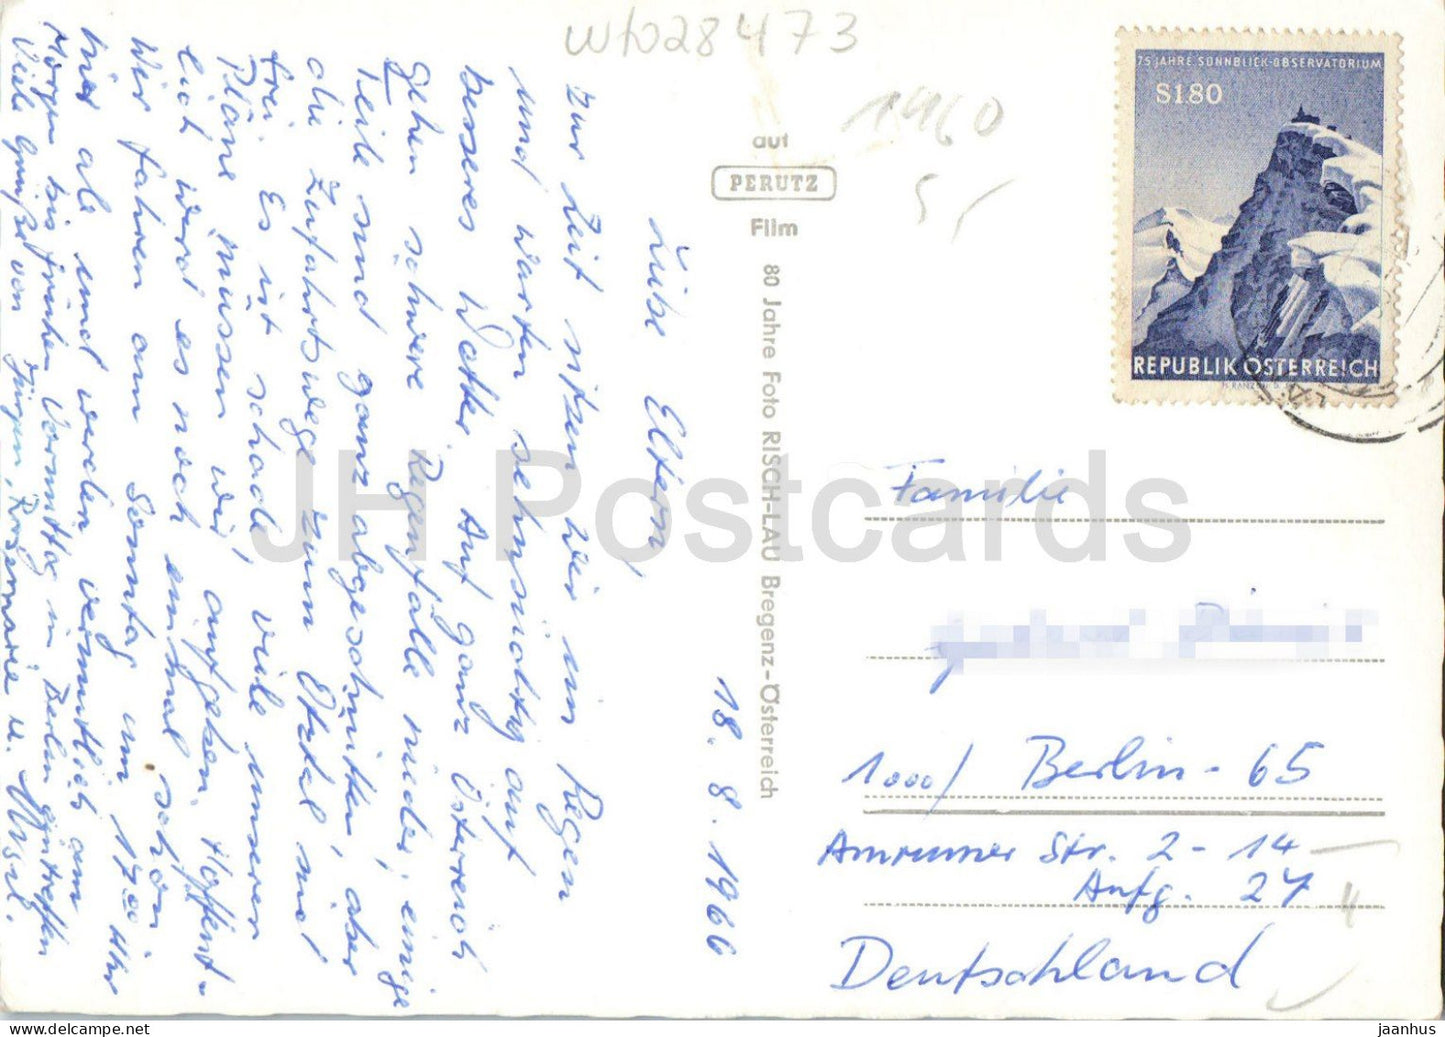 wb28473
1960
5,-
75 JAHRE SONNBLICK-OBSERVATORIUM
S1.80
REPUBLIK ÖSTERREICH
auf
PERUTZ
Film
80 Jahre Foto RISCH-LAU Bregenz-Österreich
18. 8. 1966
Liebe Eltern,
zur Zeit sitzen wir im Regen
und warten sehnsüchtig auf
besseres Wetter. Auf ganz Österreich
gehen schwere Regenfälle nieder, einige
Teile sind ganz abgeschnitten, aber
die Zufahrtswege zum Ötztal sind
frei. Es ist schade, viele unserer
Pläne müssen wir aufgeben. Hoffent-
lich werd es noch einmal schön.
Wir fahren am Sonntag um 17.00 Uhr
hier ab und werden vermutlich am
Morgen bis frühen Vormittag in Berlin eintreffen
Viele Grüße von Jürgen, Rosemarie u.
Familie
1000/ Berlin - 65
Amrumer Str. 2 - 14
Aufg. 27
Deutschland
JH Postcards
www.delcampe.net
jaanhus